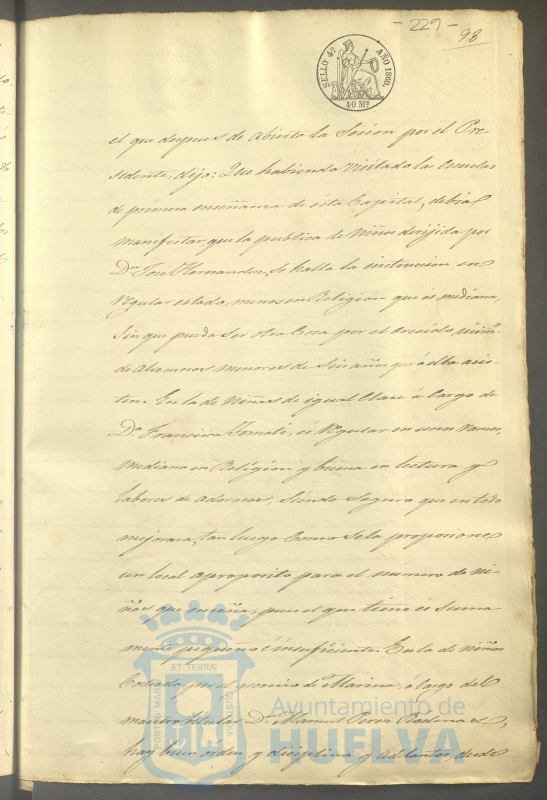 - 229 -
98
SELLO 4º AÑO 1860.
40 Mº
el que despues de abierta la Sesion por el Pre-
sidente, dijo: Que habiendo visitado las Escuelas
de primera enseñanza de esta Capital, debia
manifestar, que la publica de Niños dirijida por
Dn José Hernandez, se halla la instruccion en
regular estado, menos en Religion que es mediana,
sin que pueda ser otra Cosa por el Crecido num.º
de Alumnos menores de Seis años que á ella asis-
ten. En la de Niñas de igual Clase á Cargo de
Dª Francisca Tomati, es regular en unos ramos,
mediana en Religion y buena en lectura y
labores de adornos, siendo seguro que en todo
mejorara, tan luego Como se la proporcione
un local aproposito para el número de ni-
ñas que enseña, pues el que tiene es suma-
mente pequeño é insuficiente. En la de niños
Costeada por el gremio de Marina, á Cargo del
maestro titular Dn Manuel Perez
hay buen orden y diciplina y adelantos, desde
PORTUS MARIS ET TERRÆ CUSTODIA
Ayuntamiento de
HUELVA